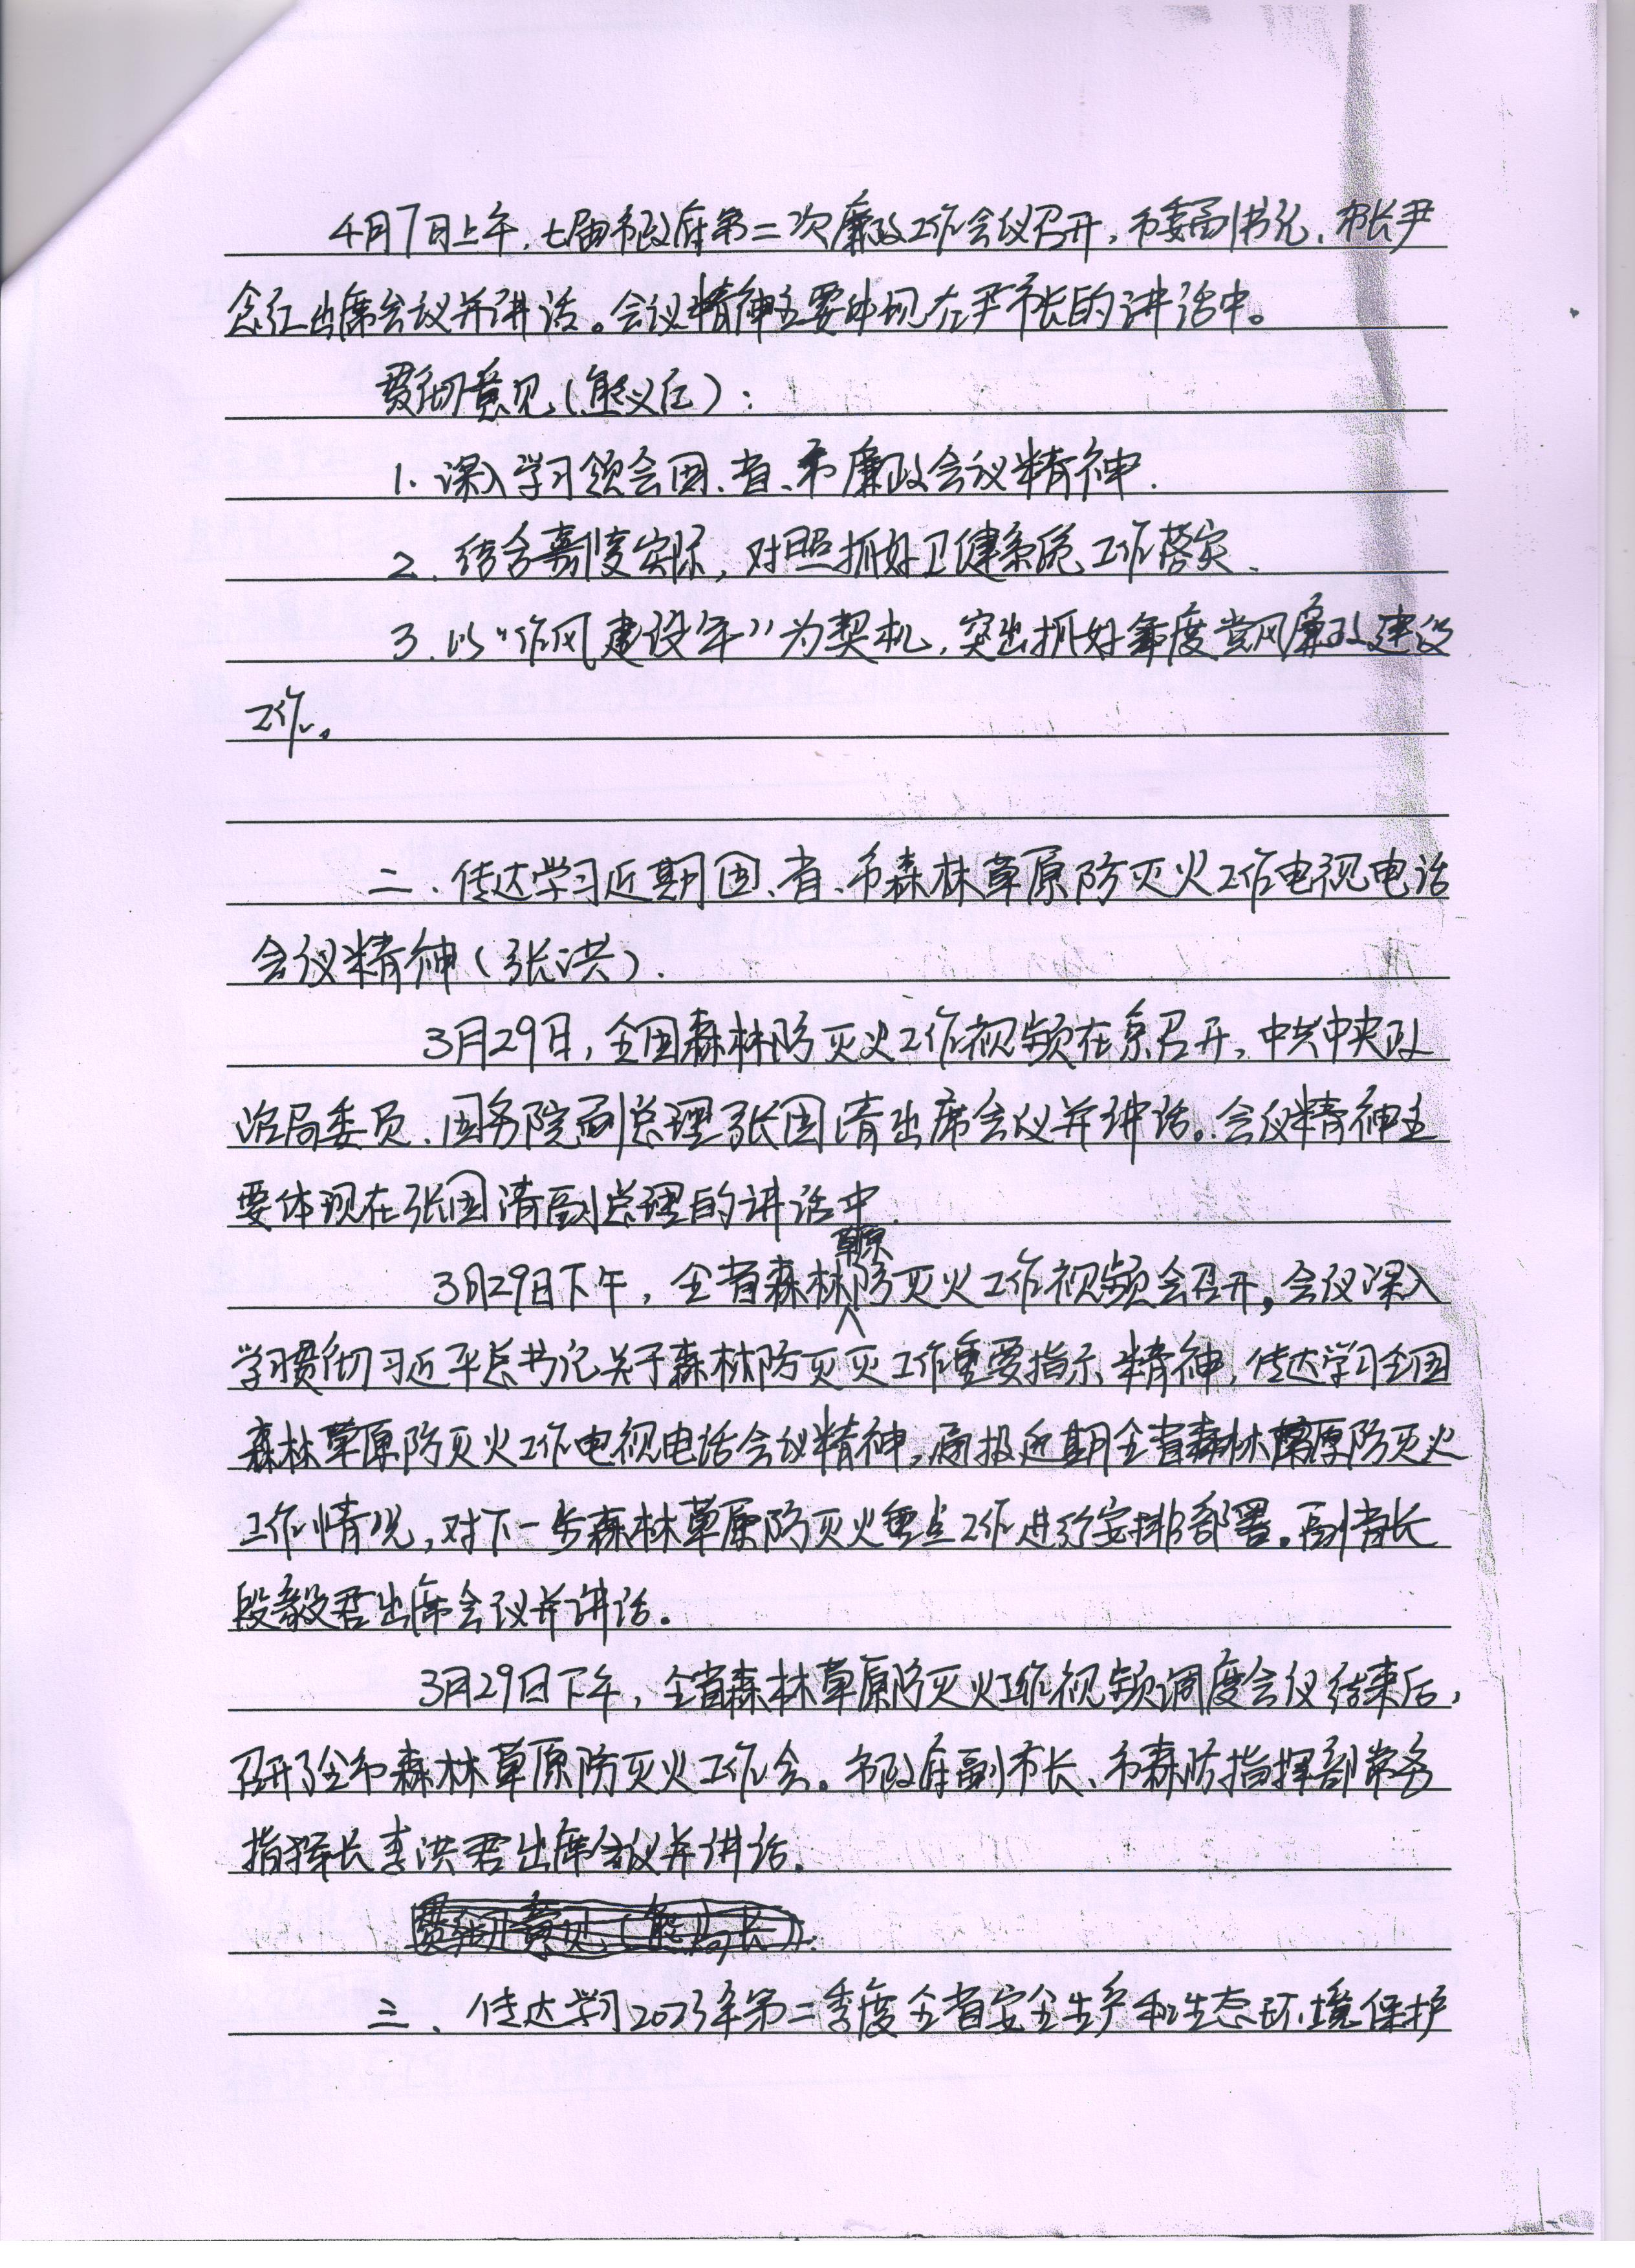 4月7日上午,七届市政府第二次廉政工作会议召开,市委副书记、市长尹
念红出席会议并讲话。会议精神主要体现在尹市长的讲话中。
贯彻意见(熊义后):
1.深入学习领会国、省、市廉政会议精神.
2.结合嘉鱼实际,对照抓好卫健系统工作落实.
3.以“作风建设年”为契机,突出抓好年度党风廉政建设
工作。
二.传达学习近期国、省、市森林草原防灭火工作电视电话
会议精神(张洪).
3月29日,全国森林防灭火工作视频在京召开,中共中央政
治局委员、国务院副总理张国清出席会议并讲话。会议精神主
要体现在张国清副总理的讲话中.
3月29日下午,全省森林草原防灭火工作视频会召开,会议深入
学习贯彻习近平总书记关于森林防灭灭工作重要指示精神,传达学习全国
森林草原防灭火工作电视电话会议精神,通报近期全省森林草原防灭火
工作情况,对下一步森林草原防灭火重点工作进行安排部署。副省长
段毅君出席会议并讲话。
3月29日下午,全省森林草原防灭火工作视频调度会议结束后,
召开了全市森林草原防灭火工作会。市政府副市长、市森防指挥部常务
指挥长李洪君出席会议并讲话.
三.传达学习2023年第二季度全省安全生产和生态环境保护